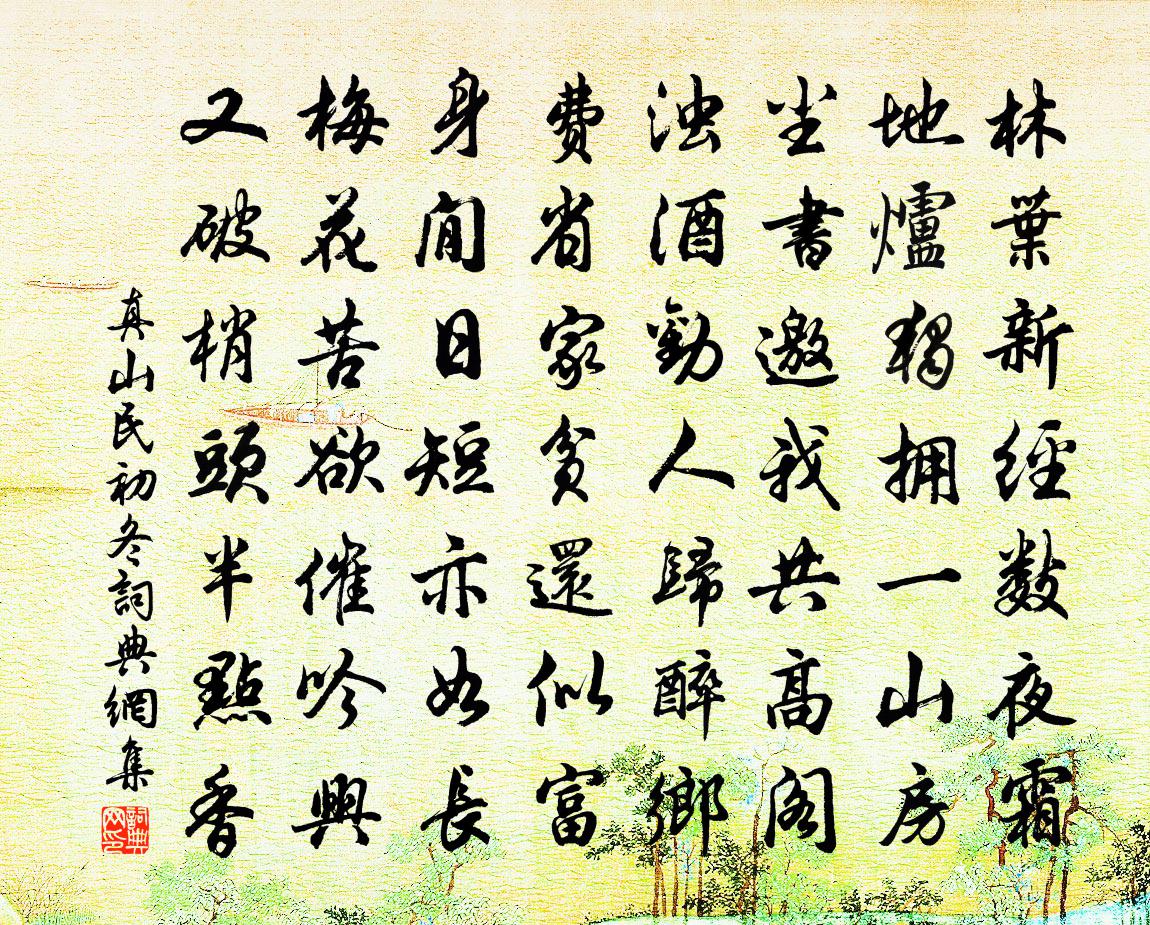 林葉新經數夜霜
地爐獨擁一山房
尘書邀我共高閣
浊酒勸人歸醉鄉
費省家貧還似富
身閒日短亦如長
梅花苦欲催吟興
又破梢頭半點香
真山民初冬詞典網集
詞典網印